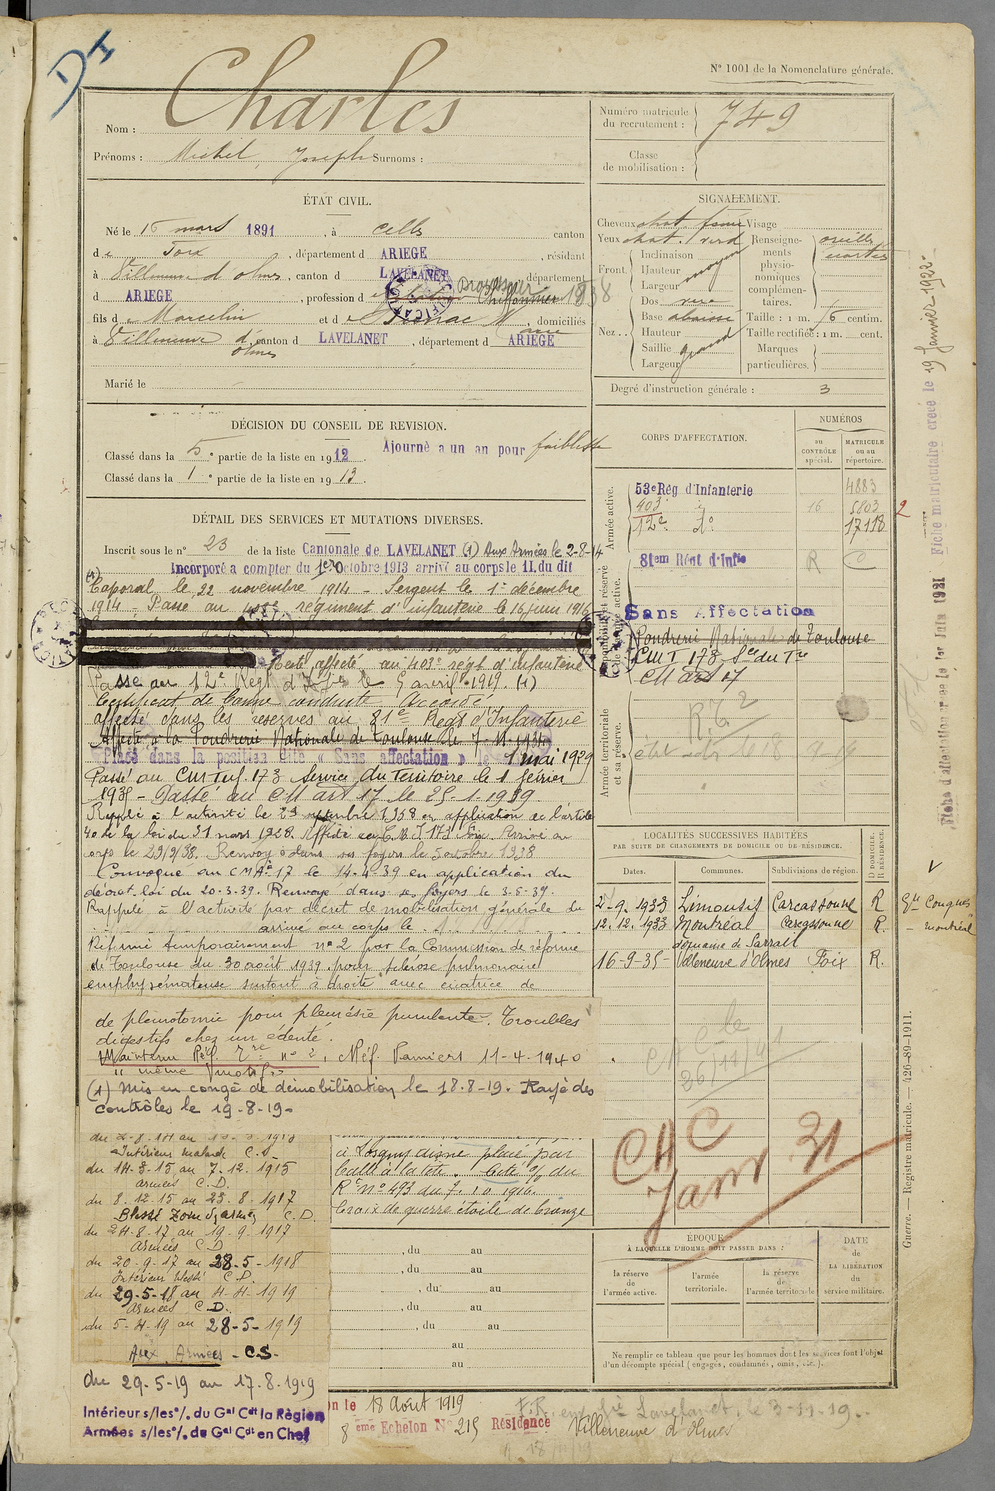 DI
N° 1001 de la Nomenclature générale.
Nom : Charles
Prénoms : Michel, Joseph Surnoms :
Numéro matricule du recrutement : 749
Classe de mobilisation :
ÉTAT CIVIL.
Né le 16 mars 1891, à Cella canton
de Foix, département d ARIEGE, résidant
à Villeneuve d'olmes, canton d LAVELANET, département
d ARIEGE, profession d 1938
fils de Marcelin et de Marie, domiciliés
à Villeneuve d'olmes canton d LAVELANET, département d ARIEGE
Marié le
SIGNALEMENT.
Cheveux chat. foncé Visage
Yeux chat. verd Renseignements physionomiques complémentaires. oreilles écartées
Front. Inclinaison
Hauteur moyen
Largeur
Nez. Dos
Base abaissé Taille : 1 m. 6 centim.
Hauteur Taille rectifiée : 1 m. cent.
Saillie grand Marques
Largeur particulières.
Degré d'instruction générale : 3
DÉCISION DU CONSEIL DE REVISION.
Classé dans la 5e partie de la liste en 1912 Ajourné a un an pour faiblesse
Classé dans la 1e partie de la liste en 1913.
CORPS D'AFFECTATION.
NUMÉROS
au CONTRÔLE spécial.
MATRICULE ou au répertoire.
Armée active.
53e Rég d'Infanterie 4883
403 16 5803 2
12e do 17118
81em Régt d'Infie R O
Sans Affectation
Poudrerie Nationale de Toulouse
CMI 173 Sce du Tre
CM Art 17
Armée territoriale et sa réserve.
DÉTAIL DES SERVICES ET MUTATIONS DIVERSES.
Inscrit sous le n° 23 de la liste Cantonale de LAVELANET (1) Aux Armées le 2-8-14
Incorporé a compter du 1er Octobre 1913 arrivé au corps le 11. du dit
Caporal le 22 novembre 1914 – Sergent le 1er décembre
1914 – Passé au régiment d'infanterie le 16 juin 1916
affecté au 403e régt d'infanterie
Passé au 12e Régt d'Ie le 5 avril 1919. (1)
Certificat de bonne conduite Accordé
affecté dans les réserves au 81e Régt d'Infanterie
Affecté à la Poudrerie Nationale de Toulouse le 7-11-1934
Placé dans la position dite « Sans affectation » le 1 mai 1929
Passé au CM Inf. 173 Service du Territoire le 1 février
1935 – Passé au CM Art 17 le 25-1-1939
Rappelé à l'activité le 29 septembre 1938 en application de l'article
40 de la loi du 31 mars 1928. Affecté au C.M.I 173 Foix. Arrivé au
corps le 29/9/38. Renvoyé dans ses foyers le 5 octobre 1938
Convoqué au CMAie 17 le 14-4-39 en application du
décret-loi du 20-3-39. Renvoyé dans ses foyers le 3-5-39.
Rappelé à l'activité par décret de mobilisation générale du
arrivé au corps le
Réformé temporairement n° 2 par la Commission de réforme
de Toulouse du 30 août 1939 pour sclérose pulmonaire
emphysémateuse surtout à droite avec cicatrice de
de pleurotomie pour pleurésie purulente. Troubles
digestifs chez un édenté.
Maintenu Réf. Tre n° 2, Méf. Pamiers 11-4-1940
" même motif "
(1) Mis en congé de démobilisation le 18-8-19. Rayé des
contrôles le 19-8-19.
LOCALITÉS SUCCESSIVES HABITÉES
PAR SUITE DE CHANGEMENTS DE DOMICILE OU DE RÉSIDENCE.
Dates. Communes. Subdivisions de région. D. DOMICILE. R. RÉSIDENCE.
2-9-1933 Limousis Carcassonne R
12.12.1933 Montréal Carcassonne R.
domaine de Sarrail
16-9-35- Villeneuve d'Olmes Foix R.
Gie Conques
– Montréal
CAC
Janv. 31
du 2-8-14 au
Intérieur malade C.S.
du 14-8-15 au 7-12.1915
armées C.D.
du 8.12.15 au 23.8.1917
Blessé Zone d armées C.D.
du 24-8-17 au 19.9.1917
Armées C.D
du 20-9-17 au 28-5-1918
Intérieur blessé C.D.
du 29-5-18 au 4-4-1919
Armées C.D.
du 5-4-19 au 28-5-1919
Aux Armées – C.S.
du 29-5-19 au 17.8.1919
Intérieur s/les o/. du Gal Cdt la Région
Armées s/les o/. du Gal Cdt en Chef
placé par
balle à la tête. Cité o/ du
Rt n° 493 du 7.10.1916.
Croix de guerre étoile de bronze
, du au
, du au
, du au
, du au
, du au
au
au
ÉPOQUE
À LAQUELLE L'HOMME DOIT PASSER DANS :
la réserve de l'armée active.
l'armée territoriale.
la réserve de l'armée territoriale
DATE de LA LIBÉRATION du service militaire.
Ne remplir ce tableau que pour les hommes dont les services font l'objet d'un décompte spécial (engagés, condamnés, omis, etc.).
on le 18 Août 1919
8 eme Echelon N° 215 Résidence Villeneuve d'Olmes
Lavelanet, le 3-11-19.
Fiche matriculaire créée le 19 Janvier 1922
Fiche d'affectation créée le 1er Juin 1921
Guerre. — Registre matricule. — 426-89-1911.